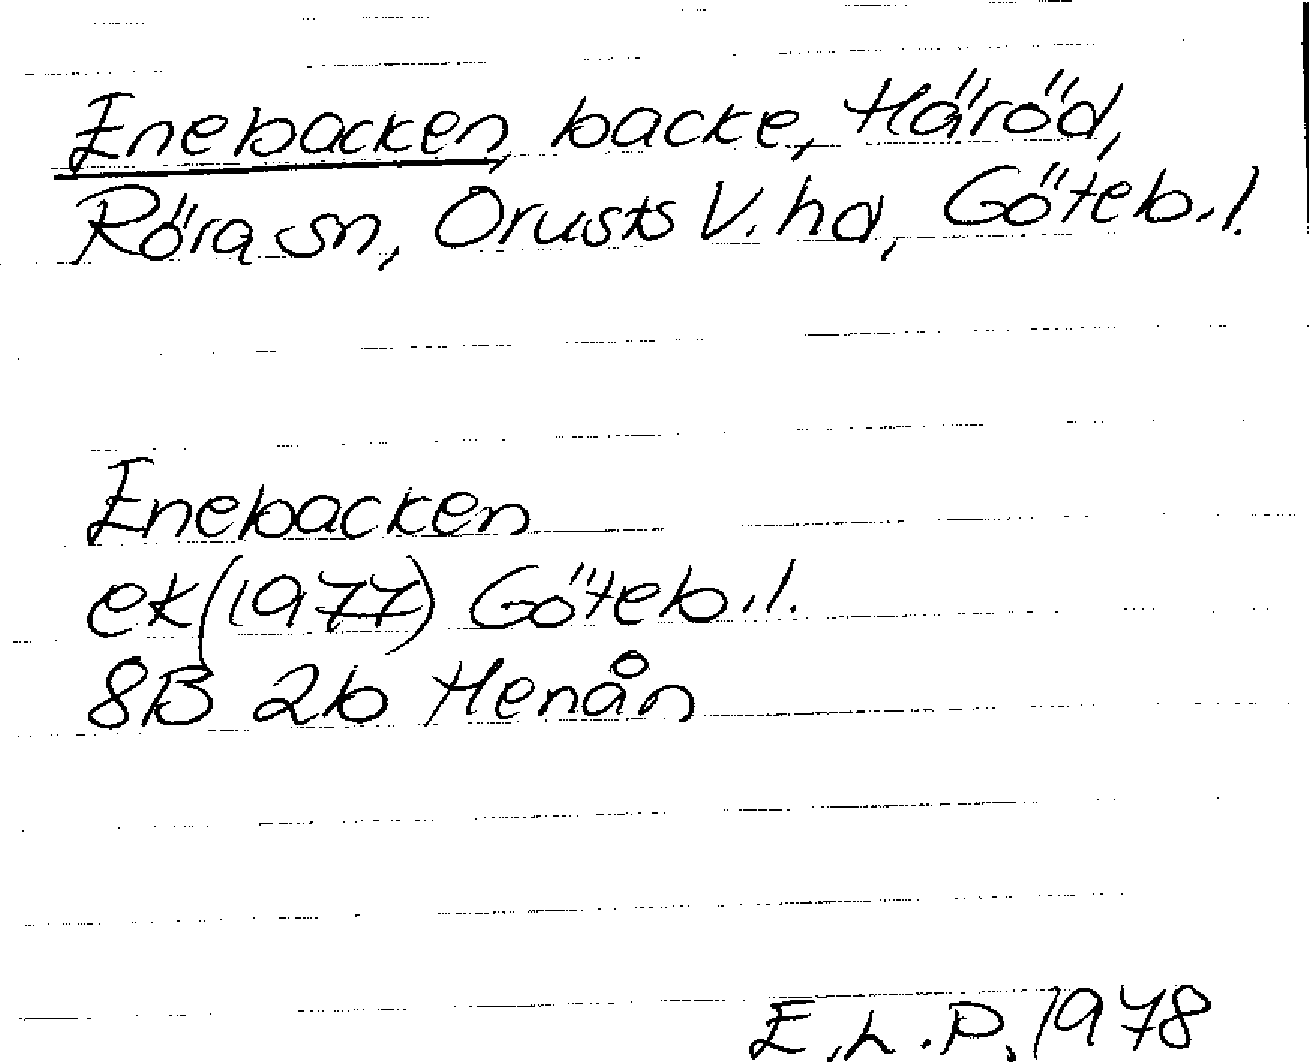 Enebacken, backe, Häröd,
Röra sn, Orusts V. hd, Göteb. l.
Enebacken
ek (1977) Göteb. l.
8B 2b Henån
E.L.P. 1978